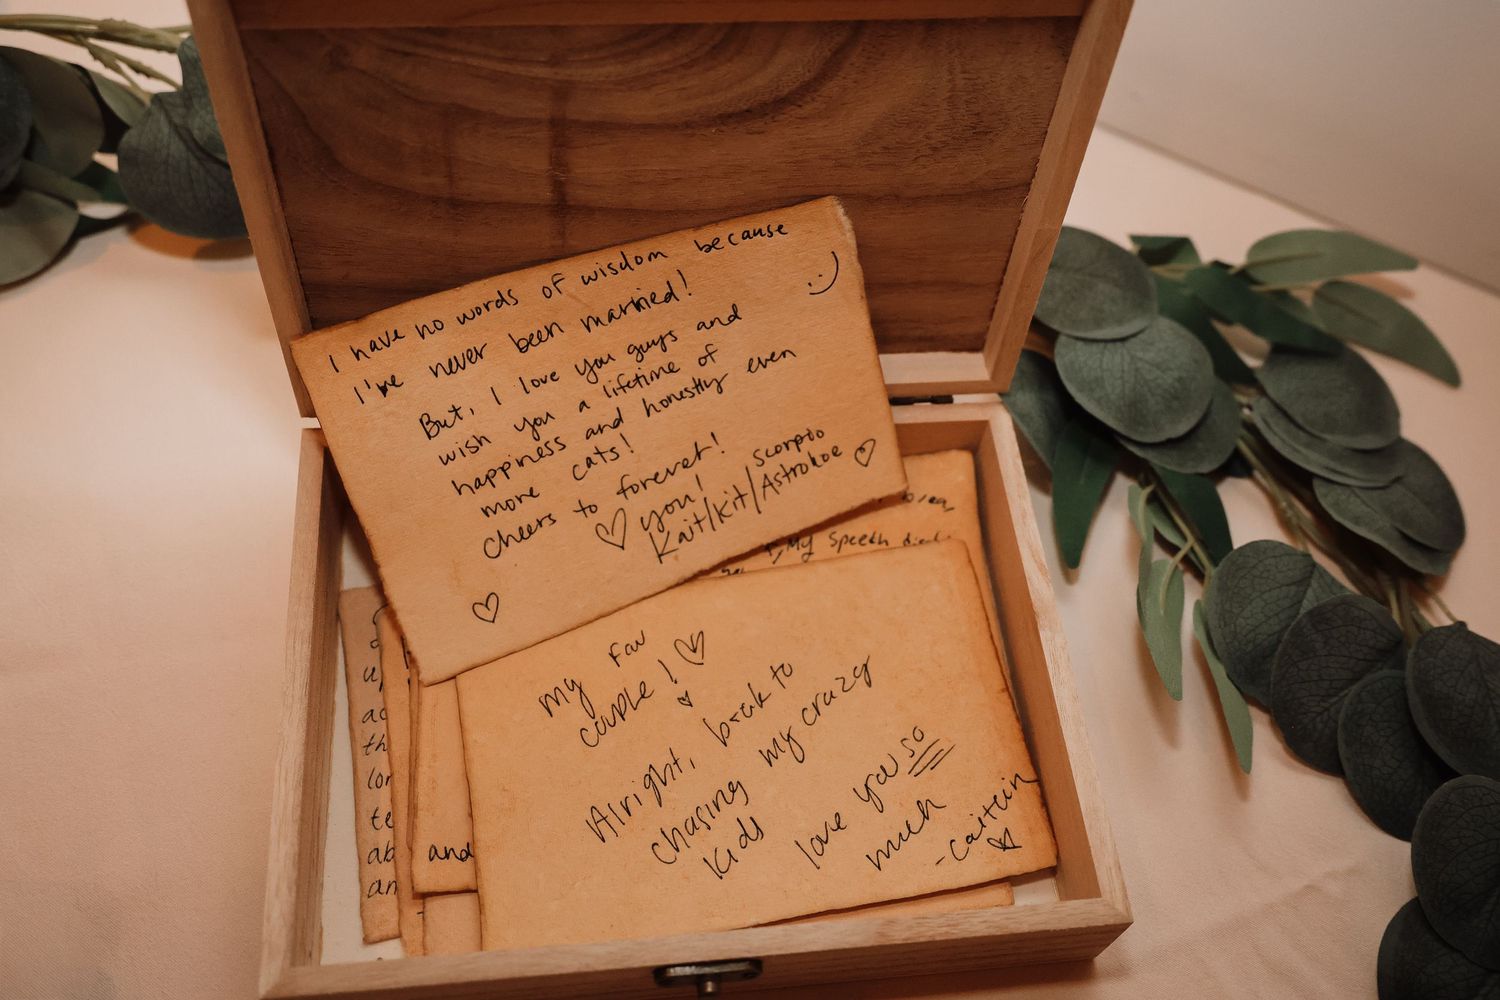 I have no words of wisdom because
I've never been married! :)
But, I love you guys and
wish you a lifetime of
happiness and honestly even
more cats!
Cheers to forever!
♡ you! Scorpio
Kait/Kit/Astrohoe ♡
♡
My Speech
my fav
couple! ♡
Alright, back to
chasing my crazy
kids
love you so
much
-Caitlin
and
th
te
ab
an